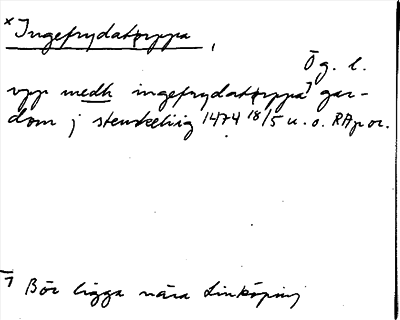 × Ingefrydatorppa,
Ög. l.
vpp medh ingefrydatorppa ⁊ gar-
dom j stenkelsig 1474 18/5 u. o. RAp or.
⁊ Bör ligga nära Linköping